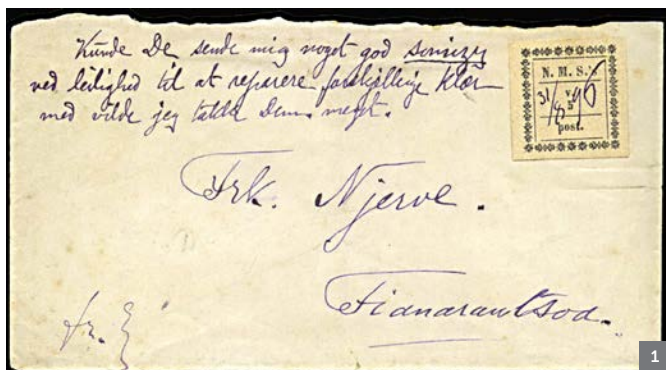 Kunde De sende mig noget god somizy
ved leilighed til at reparere forskjellige klær
med vilde jeg takke Dem meget.
N. M. S.'s
v.
5
post.
31/8 96
Frk. Njerve.
Fianarantsoa.
fr. E
1